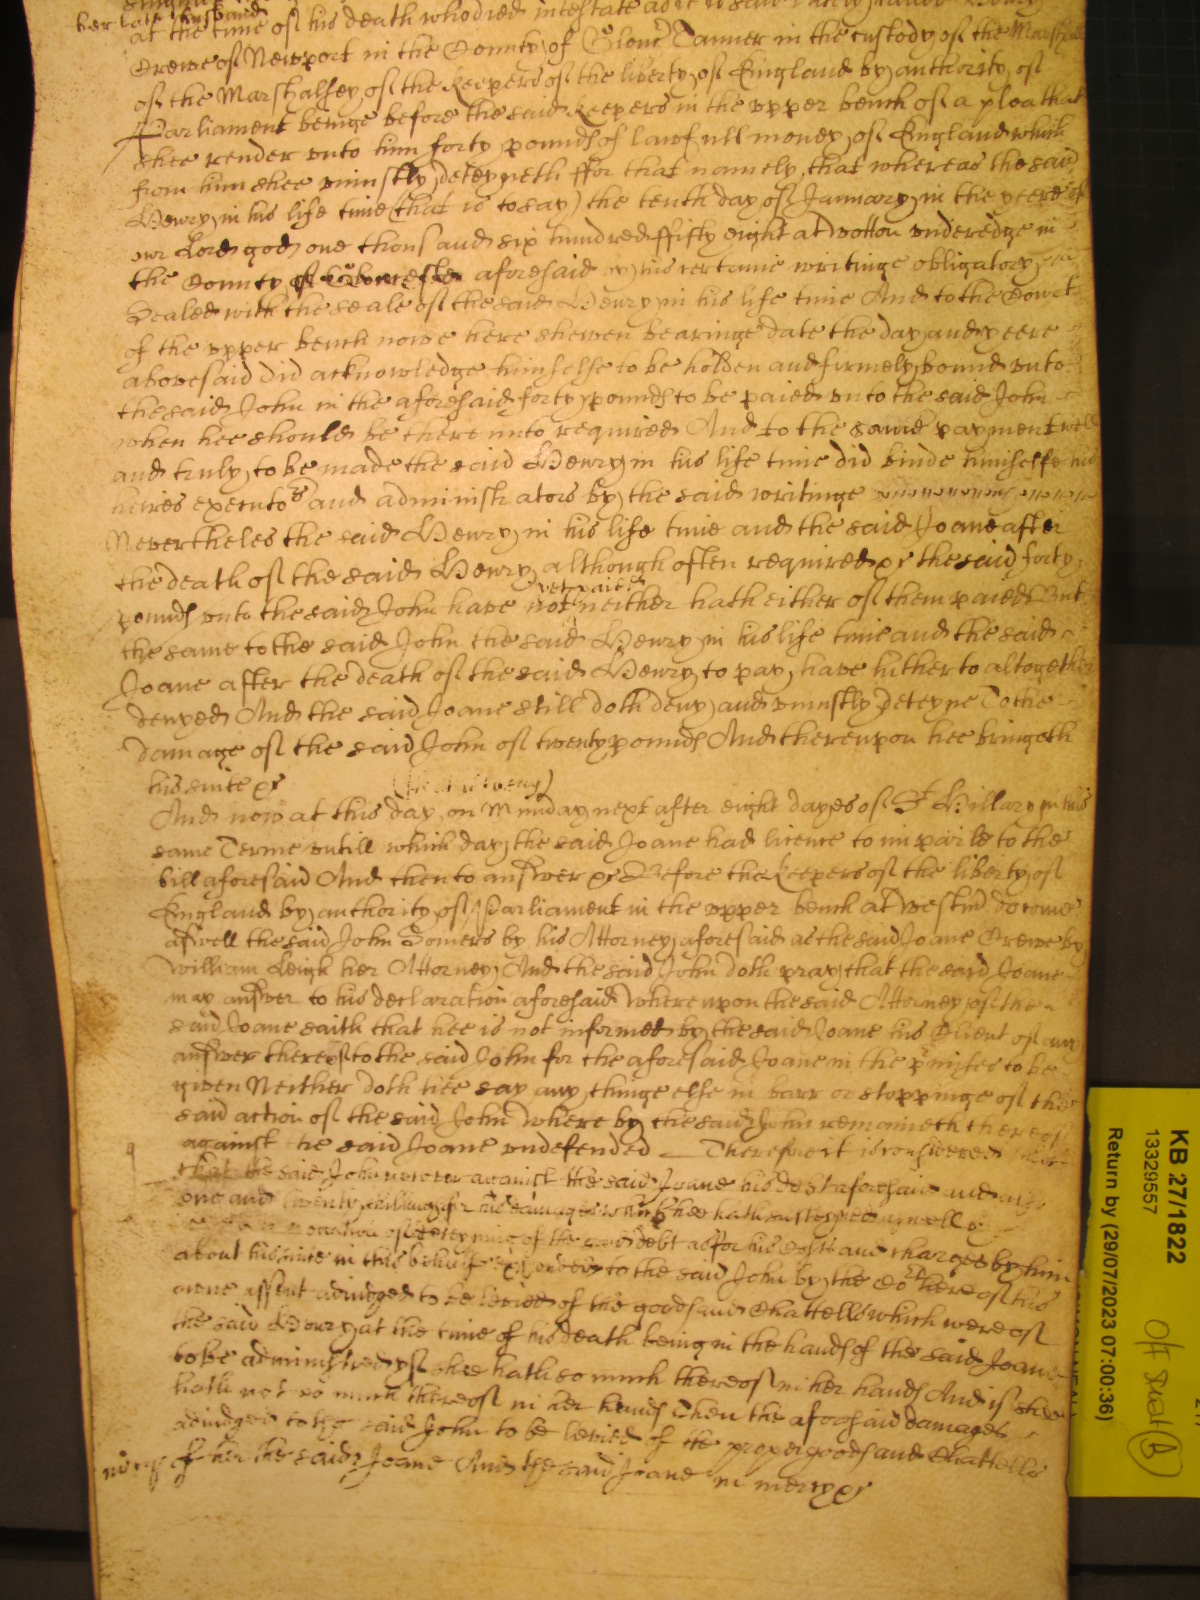 her late husband
at the time of his death who died intestate as it is said lately called Henry
Drewe of Newport in the County of Glouc Tanner in the custody of the Marshall
of the Marshalsey of the keepers of the liberty of England by authority of
Parliament beinge before the said keepers in the upper bench of a plea that
shee render unto him forty pounds of lawfull money of England which
from him shee uniustly deteyneth ffor that namely that whereas the said
Henry in his life time (that is to say) the tenth day of January in the yeere of
our Lord god one thousand six hundred ffifty eight at Wotton underedge in
the County of Gloucester aforesaid by his certaine writinge obligatory
Sealed with the seale of the said Henry in his life time And to the Court
of the upper bench nowe here shewen bearinge date the day and yeere
abovesaid did acknowledge himselfe to be holden and firmely bound unto
the said John in the aforesaid forty pounds to be paied unto the said John
when hee should be thereunto required And to the same payment well
and truly to be made the said Henry in his life time did binde himselfe his
heires executors and administrators by the said writinge
Nevertheles the said Henry in his life time and the said Joane after
the death of the said Henry although often required &c the said forty
pounds unto the said John have not yet paied neither hath either of them paied But
the same to the said John the said Henry in his life time and the said
Joane after the death of the said Henry to pay have hitherto altogether
denyed And the said Joane still doth deny and uniustly deteyne To the
damage of the said John of twenty pounds And thereupon hee bringeth
his suite &c
And now at this day on Munday next after eight dayes of St Hillary in this
same Terme untill which day the said Joane had licence to imparle to the
bill aforesaid And then to answer &c Before the keepers of the liberty of
England by authority of Parliament in the upper bench at Westm do come
aswell the said John Somers by his Attorney aforesaid as the said Joane Drewe by
William Leigh her Attorney And the said John doth pray that the said Joane
may answer to his declaration aforesaid Whereupon the said Attorney of the
said Joane saith that hee is not informed by the said Joane his Client of any
answer thereof to the said John for the aforesaid Joane in the p'misses to be
given Neither doth hee say any thinge else in barr or stoppinge of the
said action of the said John Whereby the said John remaineth thereof
against the said Joane undefended Therefore it is considered
that the said John recover against the said Joane his debt aforesaid and
one and twenty shillings for his damages which hee hath susteyned aswell
occasion of deteyning of the said debt as for his costs and charges by him
about his suite in this behalfe to the said John by the Co't here of his
owne assent adiudged to be levied of the goods and Chattells which were of
the said Henry at the time of his death being in the hands of the said Joane
to be administred yf shee hath so much thereof in her hands And if shee
hath not so much thereof in her hands Then the aforesaid damages
adiudged to the said John to be levied of the proper goods and Chattells
of her the said Joane And the said Joane in mercy &c
KB 27/1822
13329557
Return by (29/07/2023 07:00:36)